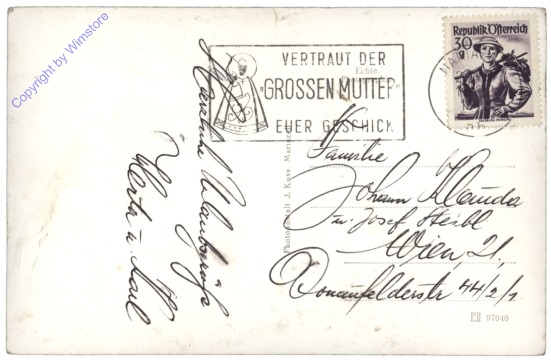 Copyright by Wimstore
VERTRAUT DER
"GROSSEN MUTTER"
EUER GESCHICK
Echte
Republik Österreich
30
g
MARIA
Herzliche Urlaubsgrüße
Herta u. Karl
Photoanstalt J. Kuss Mariazell
Familie
Johann Klauda
u. Josef Steibl
Wien 21,
Donaufelderstr 44/2/1
97040